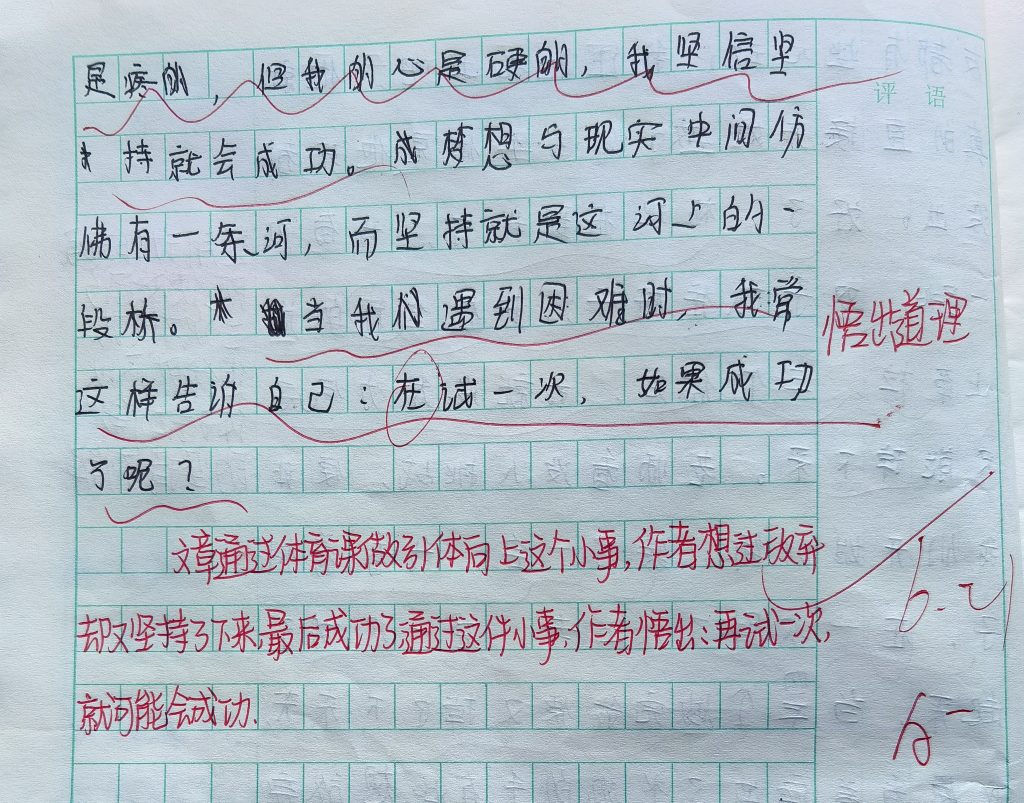 是疼的，但我的心是硬的，我坚信坚
持就会成功。成梦想与现实中间仿
佛有一条河，而坚持就是这河上的一
段桥。当我们遇到困难时，我常
这样告诉自己：在试一次，如果成功
了呢？
评语
悟出道理
文章通过体育课做引体向上这个小事，作者想过放弃
却又坚持了下来，最后成功了，通过这件小事，作者悟出：再试一次，
就可能会成功.